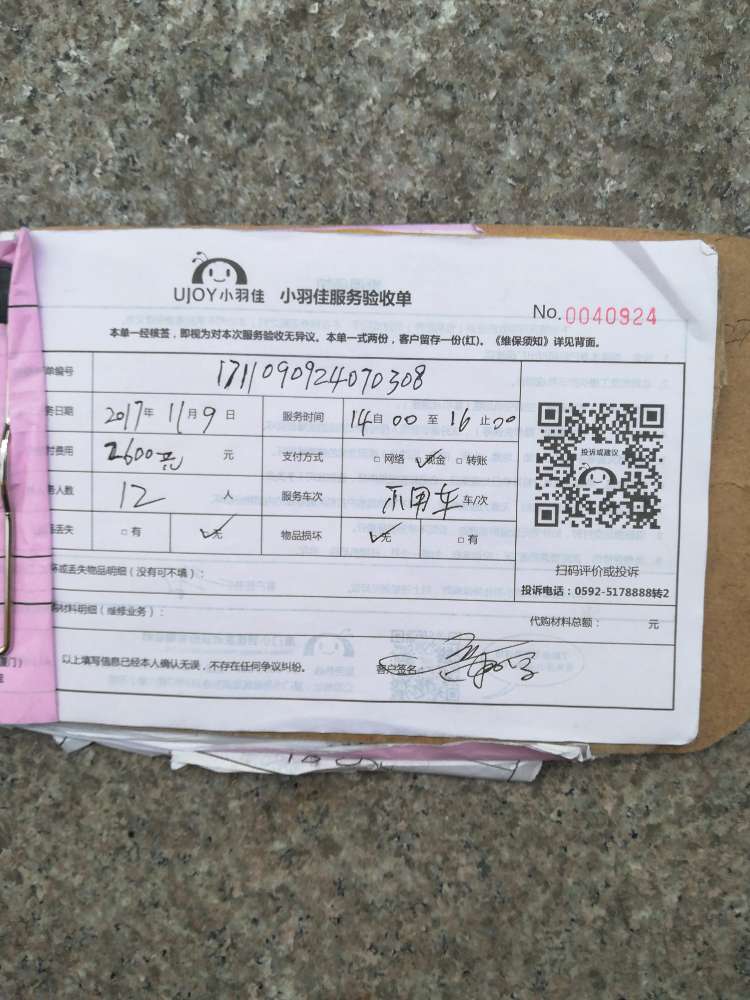 UJOY小羽佳 小羽佳服务验收单
No.0040924
本单一经核签，即视为对本次服务验收无异议。本单一式两份，客户留存一份(红)。《维保须知》详见背面。
单编号 1711090924070308
务日期 2017年11月9日 服务时间 14自00至16止00
付费用 2600元 元 支付方式 □网络 ✓现金 □转账
务人数 12 人 服务车次 不用车 车/次
品丢失 □有 ✓无 物品损坏 ✓无 □有
投诉或建议
扫码评价或投诉
投诉电话：0592-5178888转2
坏或丢失物品明细（没有可不填）：
代购材料总额： 元
材料明细（维修业务）：
以上填写信息已经本人确认无误，不存在任何争议纠纷。 客户签名：